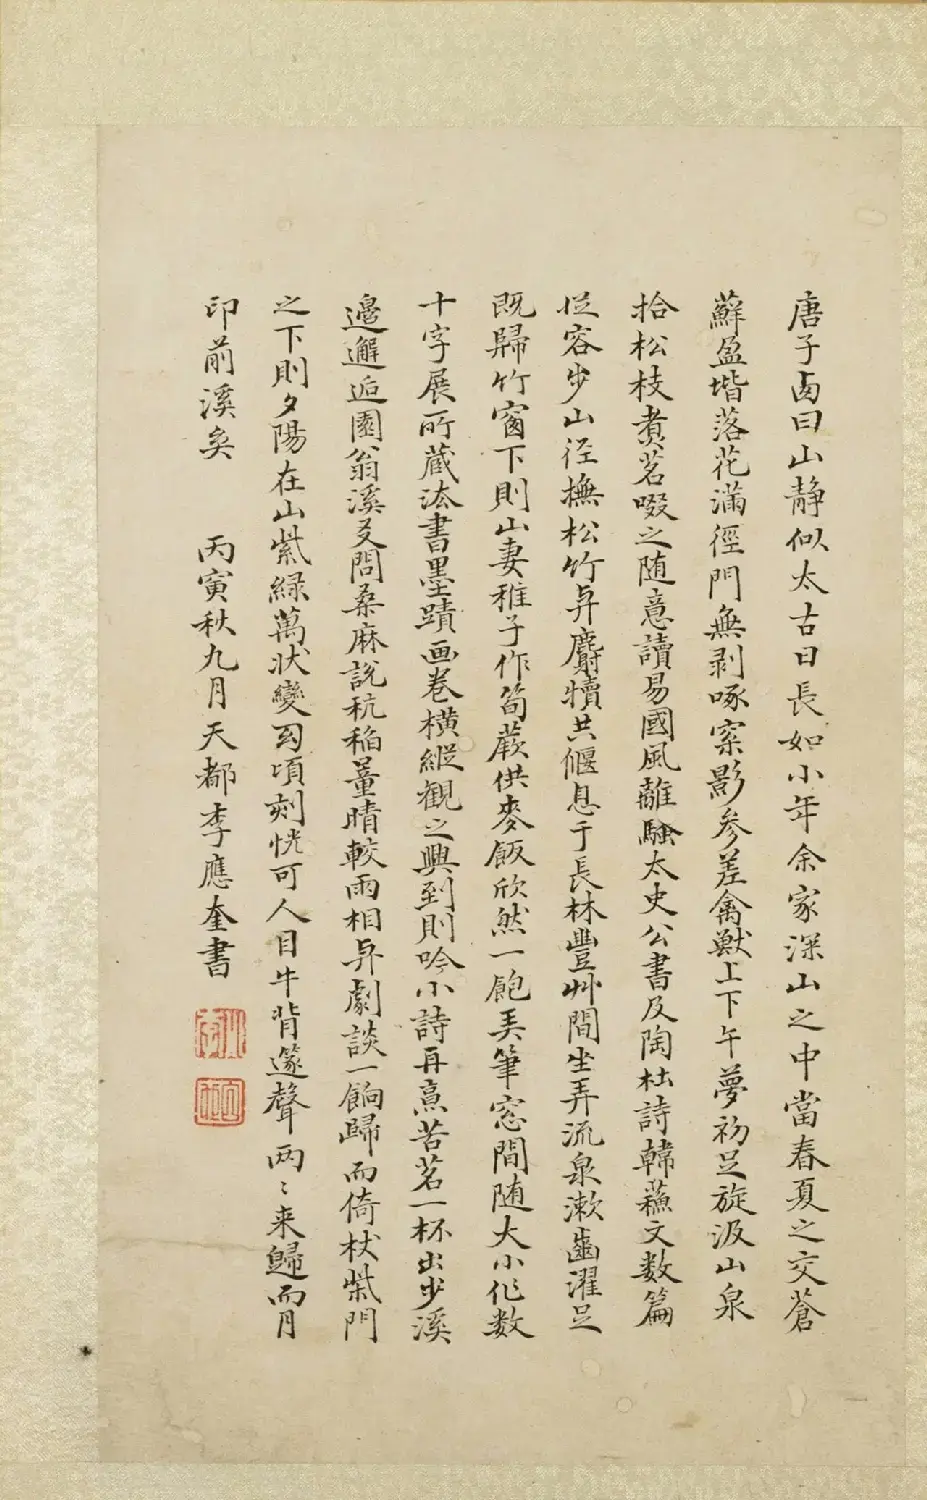 唐子卥曰山静似太古日長如小年余家深山之中當春夏之交蒼
蘚盈堦落花滿徑門無剥啄案影参差禽獸上下午夢初足旋汲山泉
拾松枝煑茗啜之随意讀易國風離騷太史公書及陶杜詩韓蘓文数篇
從容步山径撫松竹与麛犢共偃息于長林豐艸間坐弄流泉漱齒濯足
既歸竹窗下則山妻稚子作筍蕨供麥飯欣然一飽美筆窓間随大小作数
十字展所蔵法書墨蹟画卷横縱觀之興到則吟小詩再烹苦茗一杯出步溪
邉邂逅園翁溪叟問桑麻説秔稲量晴較雨相与劇談一餉歸而倚杖柴門
之下則夕陽在山紫緑萬狀變幻頃刻恍可人目牛背篴聲両〻来歸而月
印前溪矣 丙寅秋九月天都李應奎書